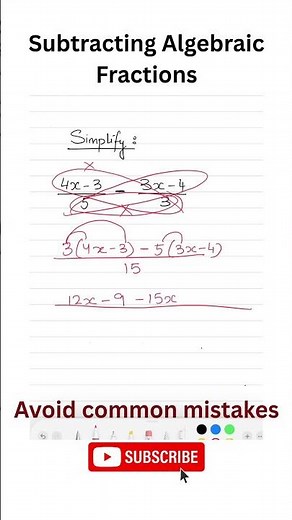 Subtracting Algebraic
Fractions
Simplify :
4x-3 - 3x-4
5 3
3(4x-3) - 5(3x-4)
15
12x - 9 - 15x
Avoid common mistakes
SUBSCRIBE